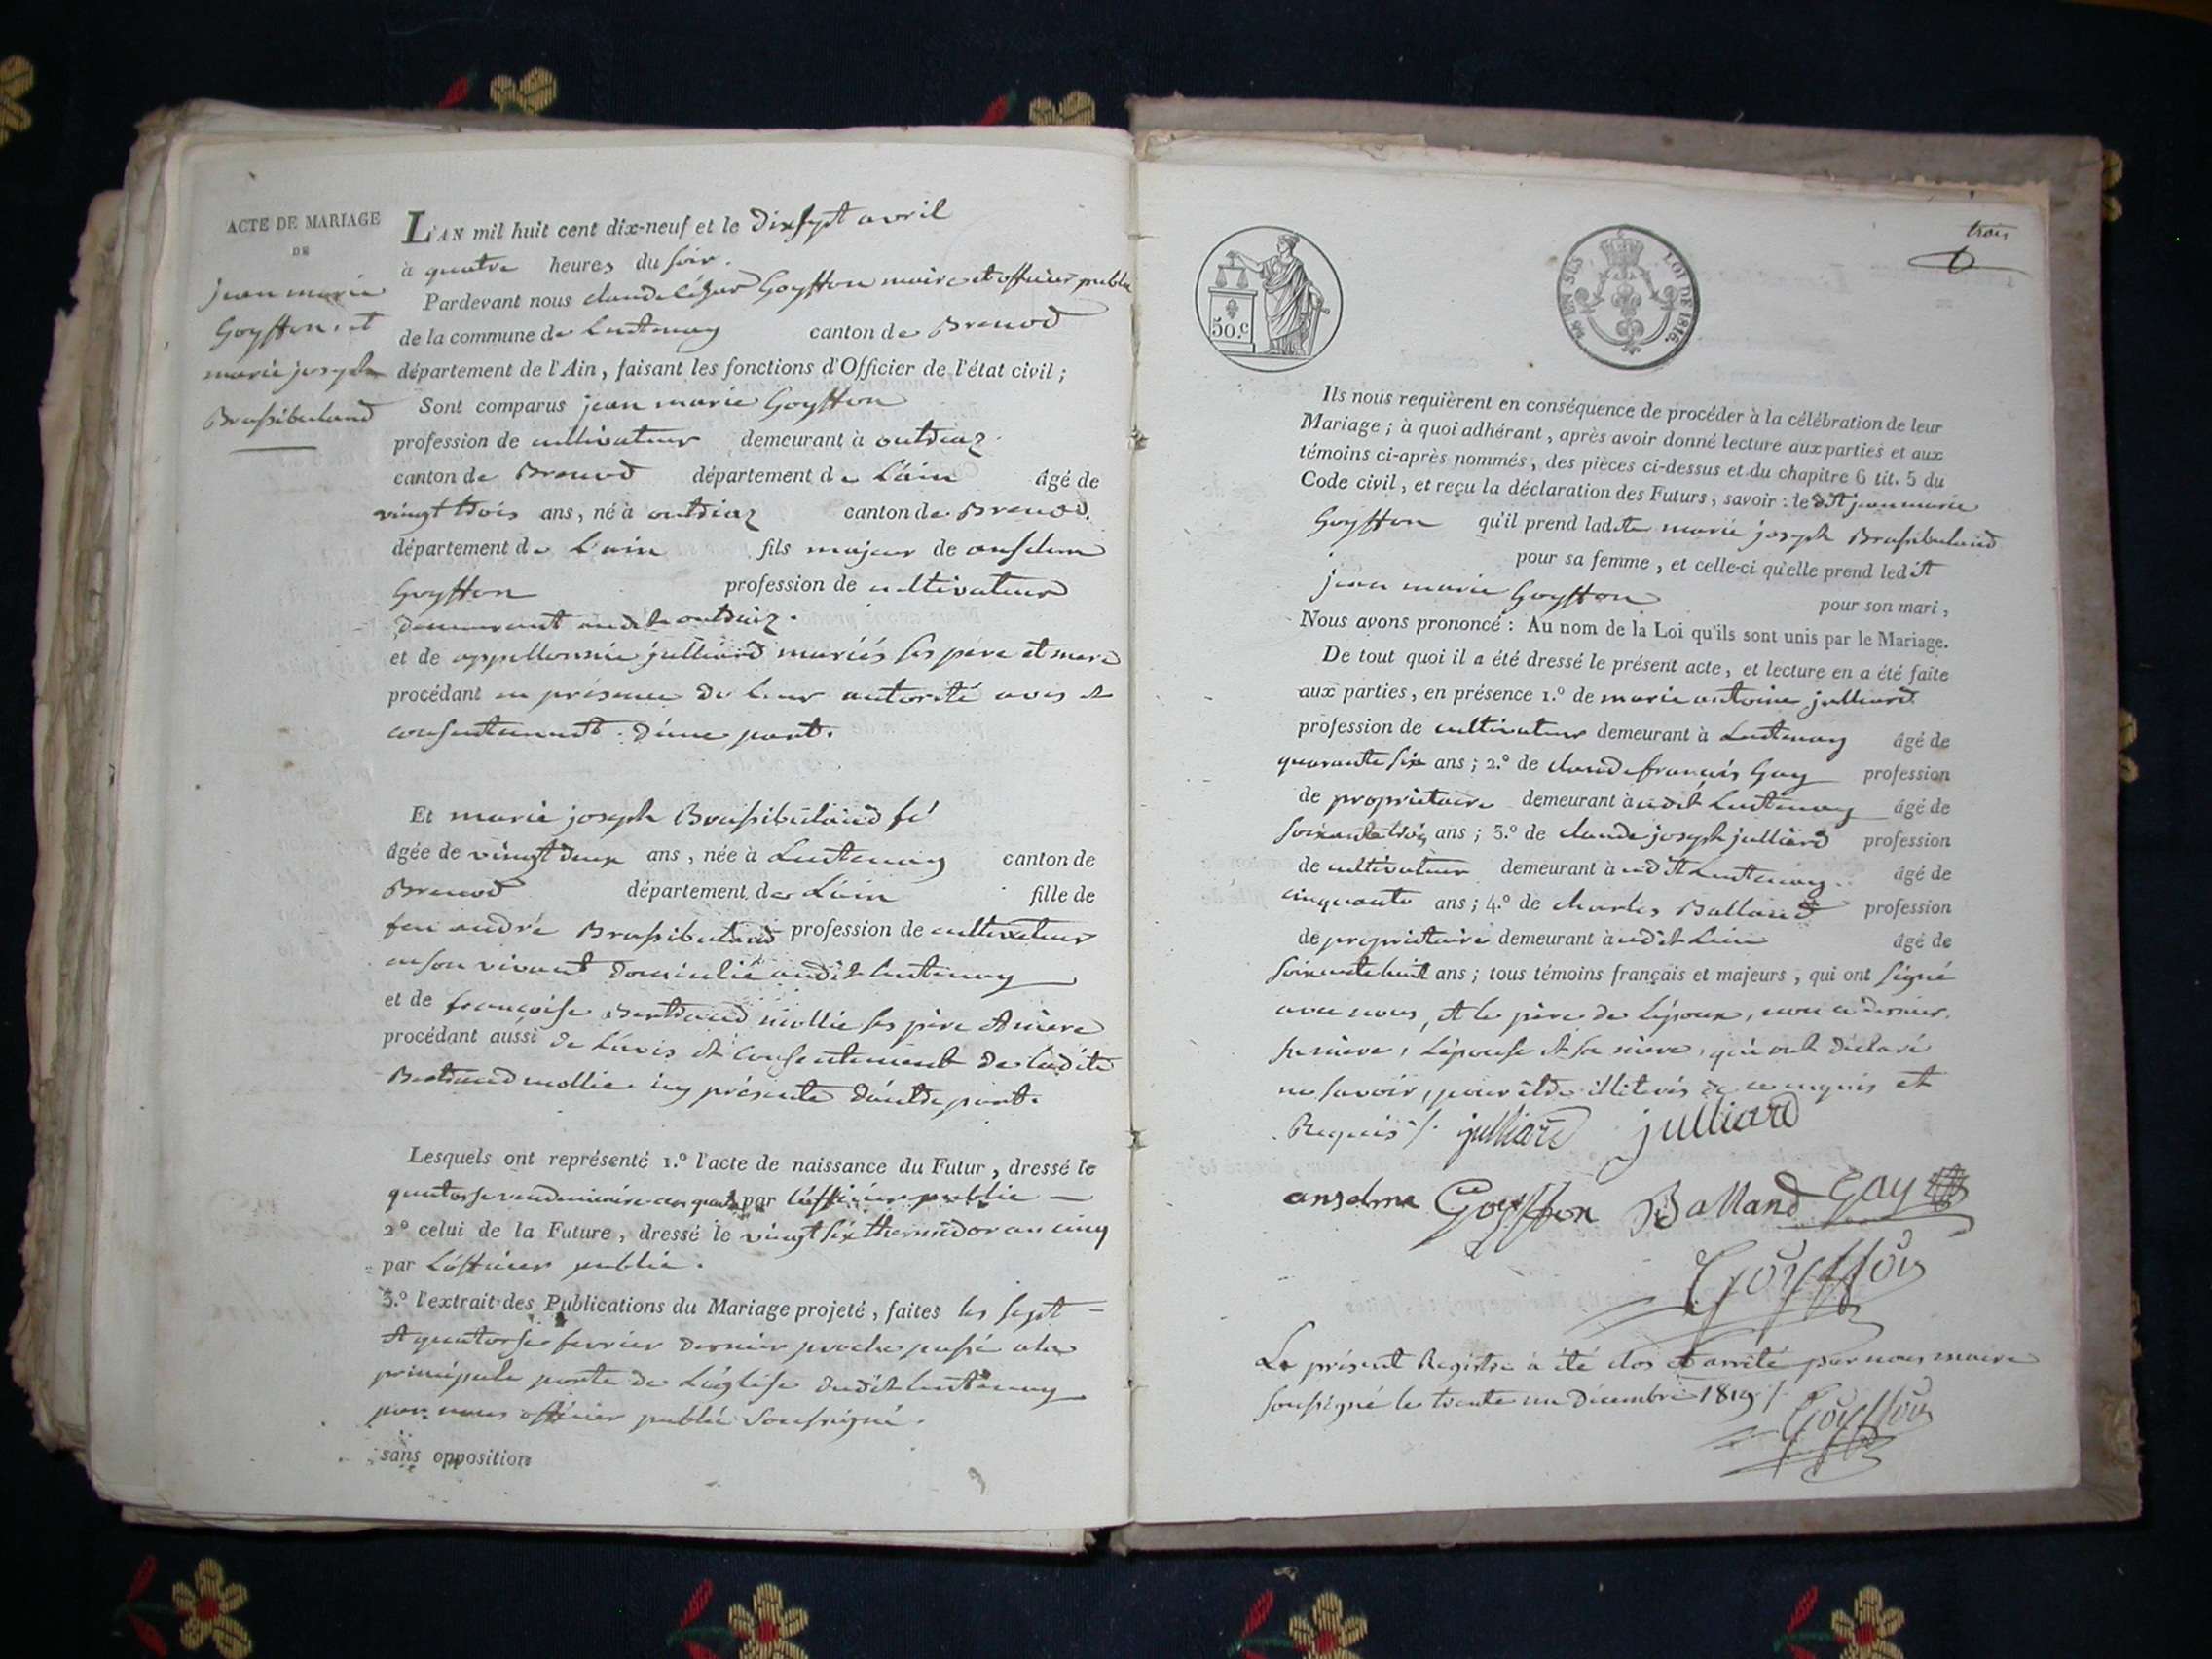 ACTE DE MARIAGE
DE
jean marie
Goyffon et
marie joseph
Brassibuland
L'AN mil huit cent dix-neuf et le dix sept avril
à quatre heures du soir.
Pardevant nous claude léger Goyffon maire et officier public
de la commune de Lantenay canton de Brenod
département de l'Ain, faisant les fonctions d'Officier de l'état civil;
Sont comparus jean marie Goyffon
profession de cultivateur demeurant à outriaz.
canton de Brenod département de L'ain âgé de
vingt trois ans, né à outriaz canton de Brenod.
département de L'ain fils majeur de anselme
Goyffon profession de cultivateur
demeurant audit outriaz.
et de appollonnie julliard mariés ses père et mere
procédant en présence de leur autorité avis et
consentement. d'une part.
Et marie joseph Brassibuland
âgée de vingt deux ans, née à Lantenay canton de
Brenod département de L'ain fille de
feu andré Brassibuland profession de cultivateur
en son vivant domicilié audit lantenay
et de françoise Bertrand mollie ses père et mere
procédant aussi de L'avis et consentement de ladite
Bertrand mollie icy présente d'autre part.
Lesquels ont représenté 1.º l'acte de naissance du Futur, dressé le
quatorse vendemiaire an quatre par l'officier public —
2º celui de la Future, dressé le vingt six thermidor an cinq
par L'officier public.
3.º l'extrait des Publications du Mariage projeté, faites les sept —
et quatorse fevrier dernier proche passé a la
principale porte de L'église dudit lantenay
par nous officier public soussigné.
sans opposition
trois
50.c
LOI DE 1816.
Ils nous requièrent en conséquence de procéder à la célébration de leur
Mariage; à quoi adhérant, après avoir donné lecture aux parties et aux
témoins ci-après nommés, des pièces ci-dessus et du chapitre 6 tit. 5 du
Code civil, et reçu la déclaration des Futurs, savoir: le dit jean marie
Goyffon qu'il prend ladite marie joseph Brassibuland
pour sa femme, et celle-ci qu'elle prend ledit
jean marie Goyffon pour son mari,
Nous avons prononcé: Au nom de la Loi qu'ils sont unis par le Mariage.
De tout quoi il a été dressé le présent acte, et lecture en a été faite
aux parties, en présence 1.º de marie antoine julliard
profession de cultivateur demeurant à Lantenay âgé de
quarante six ans; 2.º de claude françois Gay profession
de propriétaire demeurant audit Lantenay âgé de
soixante trois ans; 3.º de claude joseph julliard profession
de cultivateur demeurant à udit Lantenay. âgé de
cinquante ans; 4.º de charles Balland profession
de propriétaire demeurant audit Lieu âgé de
soixante huit ans; tous témoins français et majeurs, qui ont signé
avec nous, et le père de L'époux, non ce dernier,
sa mere, L'épouse et sa mere, qui ont déclaré
ne savoir, pour être illiterés de ce enquis et
Requis /. julliard julliard
anselme Goyffon Balland Gay
Goyffon
Le présent Registre à été clos et arrêté par nous maire
soussigné le trente un décembre 1819 /.
Goyffon